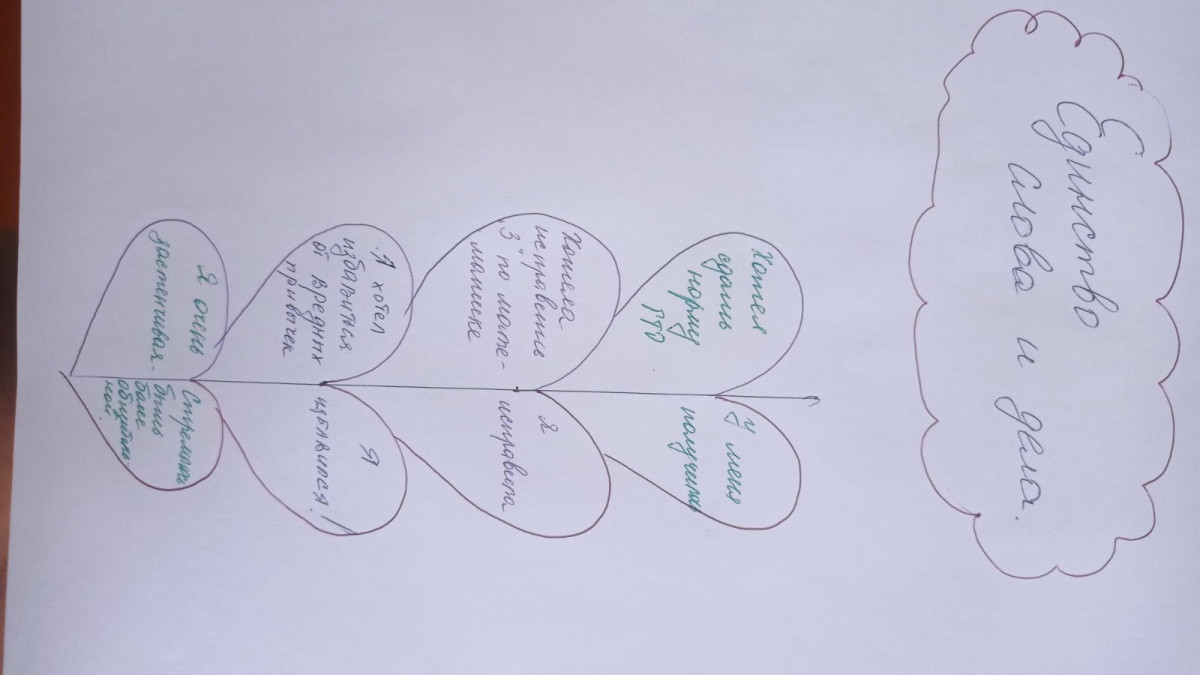 Единство
слова и дела.
Хотел
сдать
норму
ГТО
У меня
получилось
Хотела
исправить
"3" по мате-
матике
Я
исправила
Я хотел
избавиться
от вредных
привычек
Я
избавился!
Я очень
застенчивая.
Стремлюсь
быть
более
общитель-
ной.